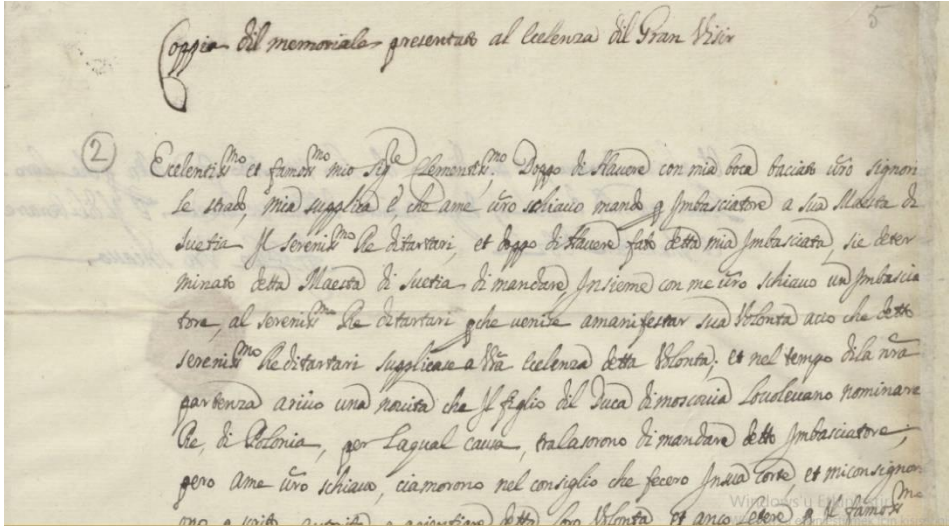 5
Coppia dil memoriale presentato al Ecelenza dil Gran Visir
2
Ecelentiss.mo et famoss.mo mio Sig.re Clementiss.mo Doppo di Havere con mia boca baciato vro signori
le strado, mia supplica è che ame vro schiavo mando p Imbasciatore a sua Maesta di
Suetia Il sereniss.mo Re ditartari, et doppo di Havere fato detta mia Imbasciata, sie deter
minato detta Maesta di suetia di mandare Insieme con me vro schiavo un Imbascia
tore, al sereniss.mo Re ditartari pche venise amanifestar sua Volonta acio che detto
sereniss.mo Re ditartari supplicase a Vra ecelenza detta Volonta; et nel tempo dila nra
partenza arivo una novita che Il figlio dil Duca dimoscovia lovolevano nominare
Re, di Polonia, per laqual causa, tralasorono di mandare detto Imbasciatore;
pero ame vro schiavo, ciamorono nel consiglio che fecero Insua corte, et miconsignor
detta loro Volonta et anco
Windows'u Etkinleştir